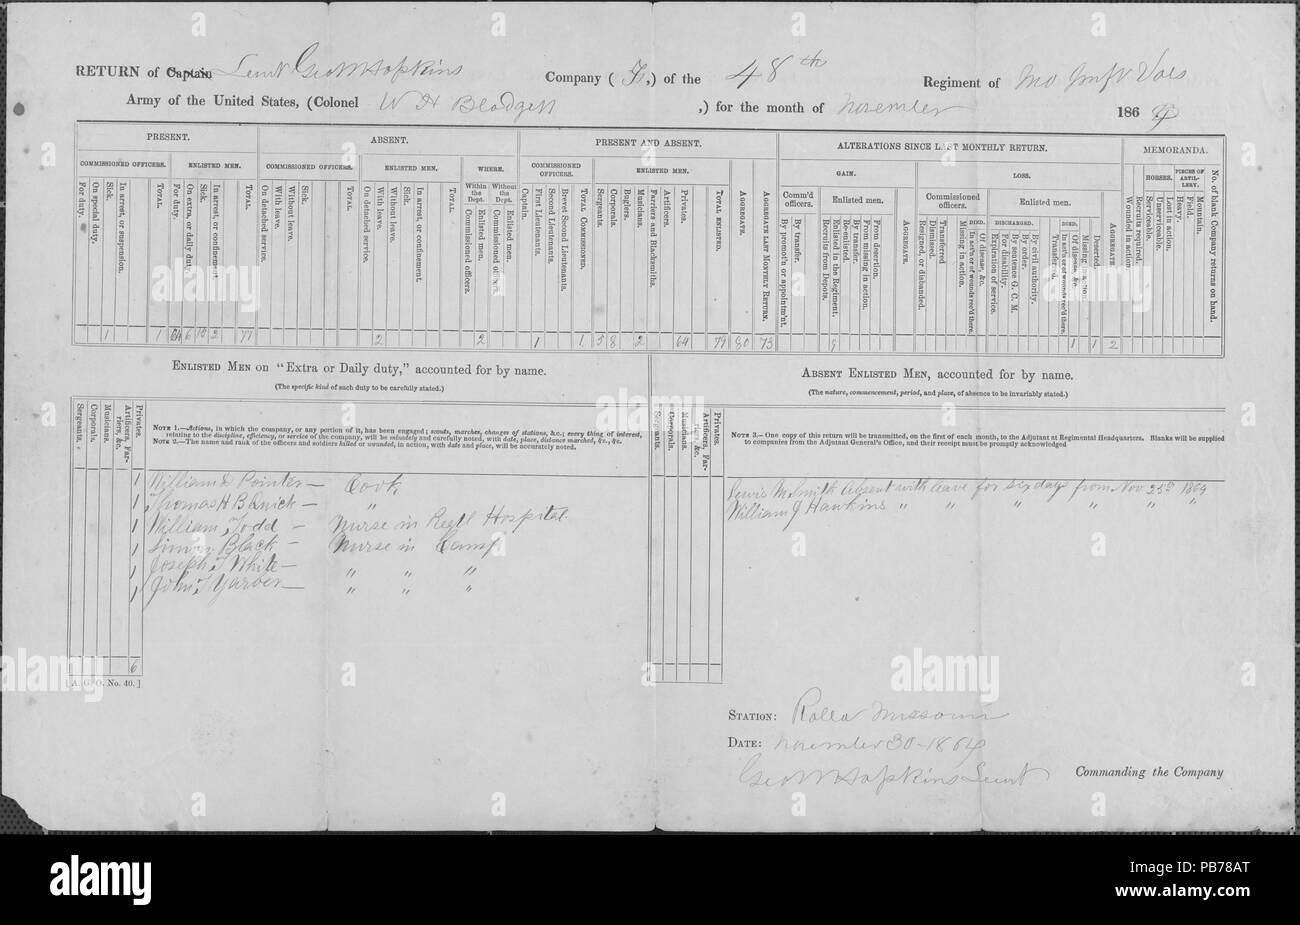 RETURN of Captain Lieut Geo W Hopkins Company ( F,) of the 48th Regiment of Mo Infy Vols
Army of the United States, (Colonel W H Blodgett ,) for the month of November 1864
PRESENT. ABSENT. PRESENT AND ABSENT. ALTERATIONS SINCE LAST MONTHLY RETURN. MEMORANDA.
COMMISSIONED OFFICERS. ENLISTED MEN. COMMISSIONED OFFICERS. ENLISTED MEN. WHERE. COMMISSIONED OFFICERS. ENLISTED MEN. GAIN. LOSS. HORSES. PIECES OF ARTILLERY.
Within the Dept. Without the Dept. Comm'd officers. Enlisted men. Commissioned officers. Enlisted men.
DIED. DISCHARGED. DIED.
For duty. On special duty. Sick. In arrest, or suspension. TOTAL. For duty. On extra, or daily duty. Sick. In arrest, or confinement. TOTAL.
On detached service. With leave. Without leave. Sick. TOTAL. On detached service. With leave. Without leave. Sick. In arrest, or confinement. TOTAL. Commissioned officers. Enlisted men. Commissioned officers. Enlisted men.
Captain. First Lieutenants. Second Lieutenants. Brevet Second Lieutenants. TOTAL COMMISSIONED. Sergeants. Corporals. Buglers. Musicians. Farriers and Blacksmiths. Artificers. Privates. TOTAL ENLISTED. AGGREGATE. AGGREGATE LAST MONTHLY RETURN.
By promot'n or appointm'nt. By transfer. Recruits from Depots. Enlisted in the Regiment. Re-enlisted. By transfer. From missing in action. From desertion. AGGREGATE.
Resigned, or disbanded. Dismissed. Transferred. Missing in action. In act'n or of wounds rec'd there. Of disease, &c. Expiration of service. For disability. By sentence G. C. M. By order. By civil authority. Transferred. In act'n or of wounds rec'd there. Of disease, &c. Missing in action. Deserted. AGGREGATE.
Wounded in action. Recruits required. Serviceable. Unserviceable. Lost in action. Heavy. Field. Mountain. No. of blank Company returns on hand.
1 1 64 6 10 2 77 2 2 1 1 5 8 2 64 79 80 73 1 1 2
ENLISTED MEN on "Extra or Daily duty," accounted for by name.
(The specific kind of such duty to be carefully stated.)
ABSENT ENLISTED MEN, accounted for by name.
(The nature, commencement, period, and place, of absence to be invariably stated.)
Sergeants. Corporals. Musicians. Artificers, Farriers, &c. Privates.
NOTE 1.—Actions, in which the company, or any portion of it, has been engaged; scouts, marches, changes of stations, &c.; every thing of interest,
relating to the discipline, efficiency, or service of the company, will be minutely and carefully noted, with date, place, distance marched, &c., &c.
NOTE 2.—The name and rank of the officers and soldiers killed or wounded, in action, with date and place, will be accurately noted.
Sergeants. Corporals. Musicians. Artificers, Farriers, &c. Privates.
NOTE 3.—One copy of this return will be transmitted, on the first of each month, to the Adjutant at Regimental Headquarters. Blanks will be supplied
to companies from the Adjutant General's Office, and their receipt must be promptly acknowledged
1 William D Pointer — Cook
1 Thomas H — "
1 William Todd — Nurse in Regtl Hospital
1 Simon Black — Nurse in Camp
1 Joseph T White — " " "
1 John T — " " "
6
Lewis M Smith Absent with leave for six days from Nov 25th 1864
William J Hawkins " " " " " "
[A. G. O. No. 40.]
STATION: Rolla Missouri
DATE: November 30 - 1864
Geo W Hopkins Lieut Commanding the Company
alamy
alamy
Image ID: PB78AT
www.alamy.com